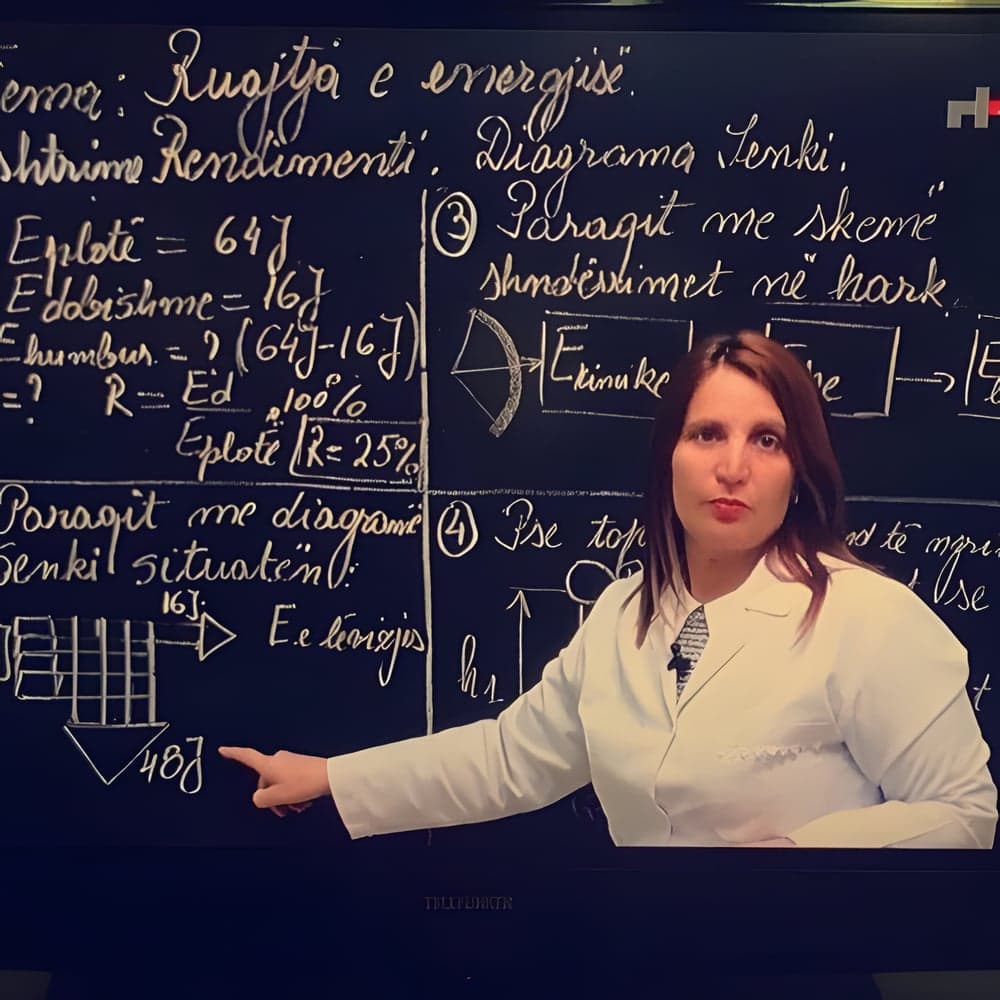 ema: Ruajtja e energjisë.
shtrime Rendimenti. Diagrama Senki.
Eplotë = 64J
Edobishme = 16J
Ehumbur = ? (64J-16J)
=? R = Ed . 100%
Eplotë R = 25%
③ Paragit me skemë
shndërrimet në hark.
Ekinetike
Paragit me diagramë
Senkil situatën:
16J.
E.e lëvizjes
48J
④ Pse top
në të ngri
se
h1
TELEFUNKEN